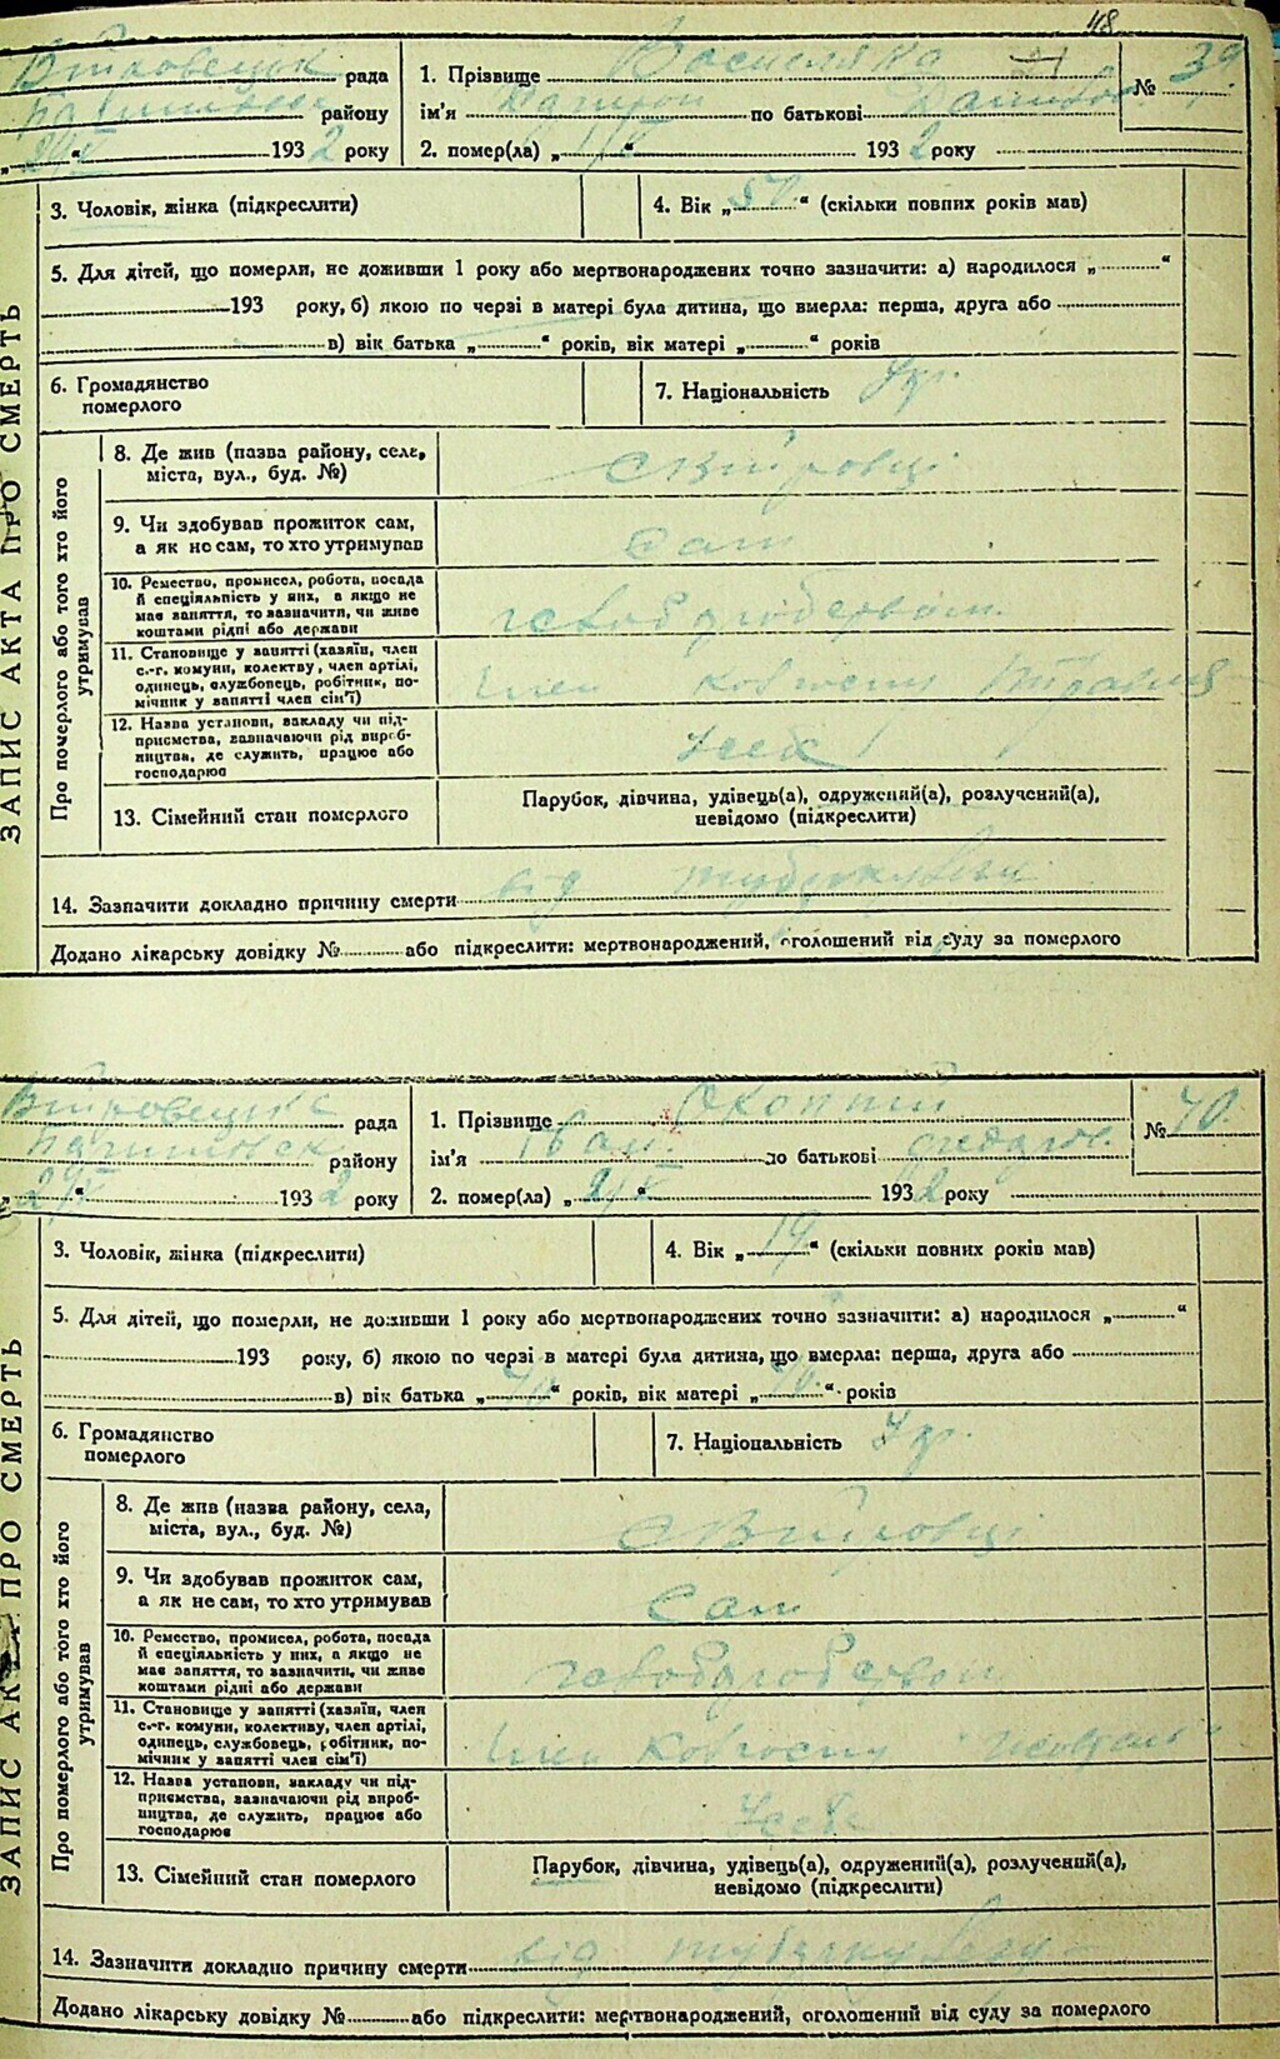 118
рада
району
193 2 року
1. Прізвище
№ 39
ім'я по батькові
2. помер(ла) „ “ 193 2 року
3. Чоловік, жінка (підкреслити)
4. Вік „ “ (скільки повних років мав)
5. Для дітей, що померли, не доживши 1 року або мертвонароджених точно зазначити: а) народилося „ “
193 року, б) якою по черзі в матері була дитина, що вмерла: перша, друга або
в) вік батька „ “ років, вік матері „ “ років
6. Громадянство
померлого
7. Національність Укр.
ЗАПИС АКТА ПРО СМЕРТЬ
Про померлого або того хто його
утримував
8. Де жив (назва району, села,
міста, вул., буд. №)
с Вітровці
9. Чи здобував прожиток сам,
а як не сам, то хто утримував
Сам
10. Ремество, промисел, робота, посада
й спеціяльність у них, а якщо не
має заняття, то зазначити, чи живе
коштами рідні або держави
11. Становище у занятті (хазяїн, член
с.-г. комуни, колективу, член артілі,
одинець, службовець, робітник, по-
мічник у занятті член сім'ї)
член
12. Назва установи, закладу чи під-
приємства, зазначаючи рід вироб-
ництва, де служить, працює або
господарює
13. Сімейний стан померлого
Парубок, дівчина, удівець(а), одружений(а), розлучений(а),
невідомо (підкреслити)
14. Зазначити докладно причину смерти від туберкульозу
Додано лікарську довідку № або підкреслити: мертвонароджений, оголошений від суду за померлого
рада
району
193 2 року
1. Прізвище Окопний
№ 40
ім'я Іван по батькові
2. помер(ла) „ “ 193 2 року
3. Чоловік, жінка (підкреслити)
4. Вік „ 19 “ (скільки повних років мав)
5. Для дітей, що померли, не доживши 1 року або мертвонароджених точно зазначити: а) народилося „ “
193 року, б) якою по черзі в матері була дитина, що вмерла: перша, друга або
в) вік батька „ “ років, вік матері „ “ років
6. Громадянство
померлого
7. Національність Укр.
ЗАПИС АКТА ПРО СМЕРТЬ
Про померлого або того хто його
утримував
8. Де жив (назва району, села,
міста, вул., буд. №)
с Вітровці
9. Чи здобував прожиток сам,
а як не сам, то хто утримував
Сам
10. Ремество, промисел, робота, посада
й спеціяльність у них, а якщо не
має заняття, то зазначити, чи живе
коштами рідні або держави
11. Становище у занятті (хазяїн, член
с.-г. комуни, колективу, член артілі,
одинець, службовець, робітник, по-
мічник у занятті член сім'ї)
член
12. Назва установи, закладу чи під-
приємства, зазначаючи рід вироб-
ництва, де служить, працює або
господарює
13. Сімейний стан померлого
Парубок, дівчина, удівець(а), одружений(а), розлучений(а),
невідомо (підкреслити)
14. Зазначити докладно причину смерти від туберкульозу
Додано лікарську довідку № або підкреслити: мертвонароджений, оголошений від суду за померлого